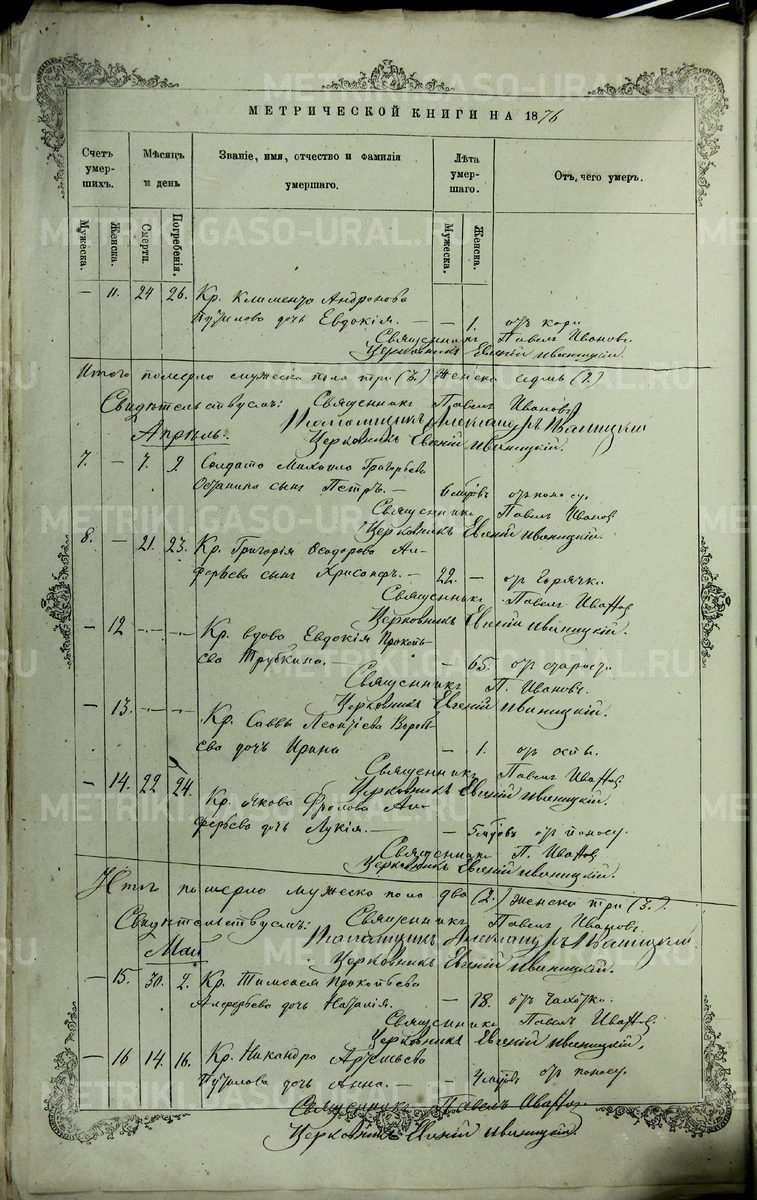 МЕТРИЧЕСКОЙ КНИГИ НА 1876
Счетъ умершихъ.
Мѣсяцъ и день
Званіе, имя, отчество и фамилія умершаго.
Лѣта умершаго.
Отъ чего умеръ.
Мужеска.
Женска.
Смерти.
Погребенія.
Мужеска.
Женска.
— 11. 24 26. Кр. Климента Андронова
Путилова дочь Евдокія. — — 1. отъ кори
Священникъ Павелъ Ивановъ.
Церковникъ Евгеній Иваницкій.
Итого померло мужеска пола три (3.) женска седмь (7.)
Свидѣтельствуемъ: Священникъ Павелъ Ивановъ
Псаломщикъ Александръ Иваницкій
Апрѣль. Церковникъ Евгеній Иваницкій.
7. — 7. 9 Солдата Михаила Григорьева
сынъ Петръ. — 6 мѣсяцовъ отъ поносу.
Священникъ Павелъ Ивановъ
Церковникъ Евгеній Иваницкій.
8. — 21. 23. Кр. Григорія Ѳеодорова Ал-
ферьева сынъ Хрисанфъ. — 22. — отъ горячк.
Священникъ Павелъ Ивановъ
Церковникъ Евгеній Иваницкій.
— 12 — — Кр. вдова Евдокія Прокопь-
ева Трубкина. — — 65. отъ старост.
Священникъ П. Ивановъ.
Церковникъ Евгеній Иваницкій.
— 13. — — Кр. Саввы Леонтіева
дочь Ирина — 1. отъ оспы.
Священникъ Павелъ Ивановъ
Церковникъ Евгеній Иваницкій.
— 14. 22 24. Кр. Якова Фролова Ал-
ферьева дочь Лукія. — — 5 мѣсяцовъ отъ поносу.
Священникъ П. Ивановъ
Церковникъ Евгеній Иваницкій.
Итого померло мужеска пола два (2.) женска три (3.)
Свидѣтельствуемъ: Священникъ Павелъ Ивановъ.
Псаломщикъ Александръ Иваницкій
Май Церковникъ Евгеній Иваницкій.
— 15. 30. 2. Кр. Тимоѳея Прокопьева
Алферьева дочь Наталія. — 18. отъ чахотки.
Священникъ Павелъ Ивановъ
Церковникъ Евгеній Иваницкій.
— 16 14. 16. Кр. Никандра Артемьева
Путилова дочь Анна. — — 4 мѣсяцовъ отъ поносу.
Священникъ Павелъ Ивановъ
Церковникъ Евгеній Иваницкій.
METRIKI.GASO-URAL.RU